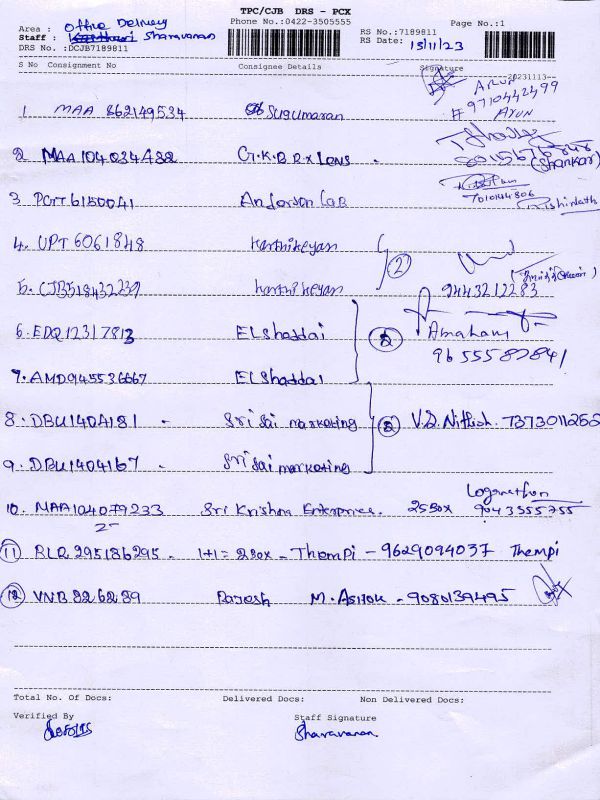 TPC/CJB DRS - PCX
Area : Office Delivery
Phone No.:0422-3505555
Page No.:1
Staff : Sharavanan
RS No.:7189811
DRS No. :DCJB7189811
RS Date: 13/11/23
S No Consignment No Consignee Details Signature
20231113--
1. MAA 862149534 Sugumaran ARUN # 9710442499 ARUN
2. MAA104034482 G.K.B Rx Lens . (Shankar)
3. PGTT6150041 Anderson Lab 7010144806 Rishinath
4. UPT 6061848 Karthikeyan (2)
5. CJB518432239 Karthikeyan 9443212283
6. EDQ12317813 ELshaddai (2) Abraham
9655587841
7. AMD945536667 ELshaddai
8. DBU1404181 - Sri Sai marketing (2) V.S. Nithish. 7373011255
9. DBU1404167 - Sri Sai marketing
10. MAA104079233 Sri Krishna Enterprices. 25Box Loganathan 9043355755
11 BLR 295186295 - 1+1 = 2Box - Thempi - 9629094037 Thempi
12 VNB 226289 Rajesh M. ASHOK - 9080139495
Total No. Of Docs: Delivered Docs: Non Delivered Docs:
Verified By Staff Signature
Sharavanan.